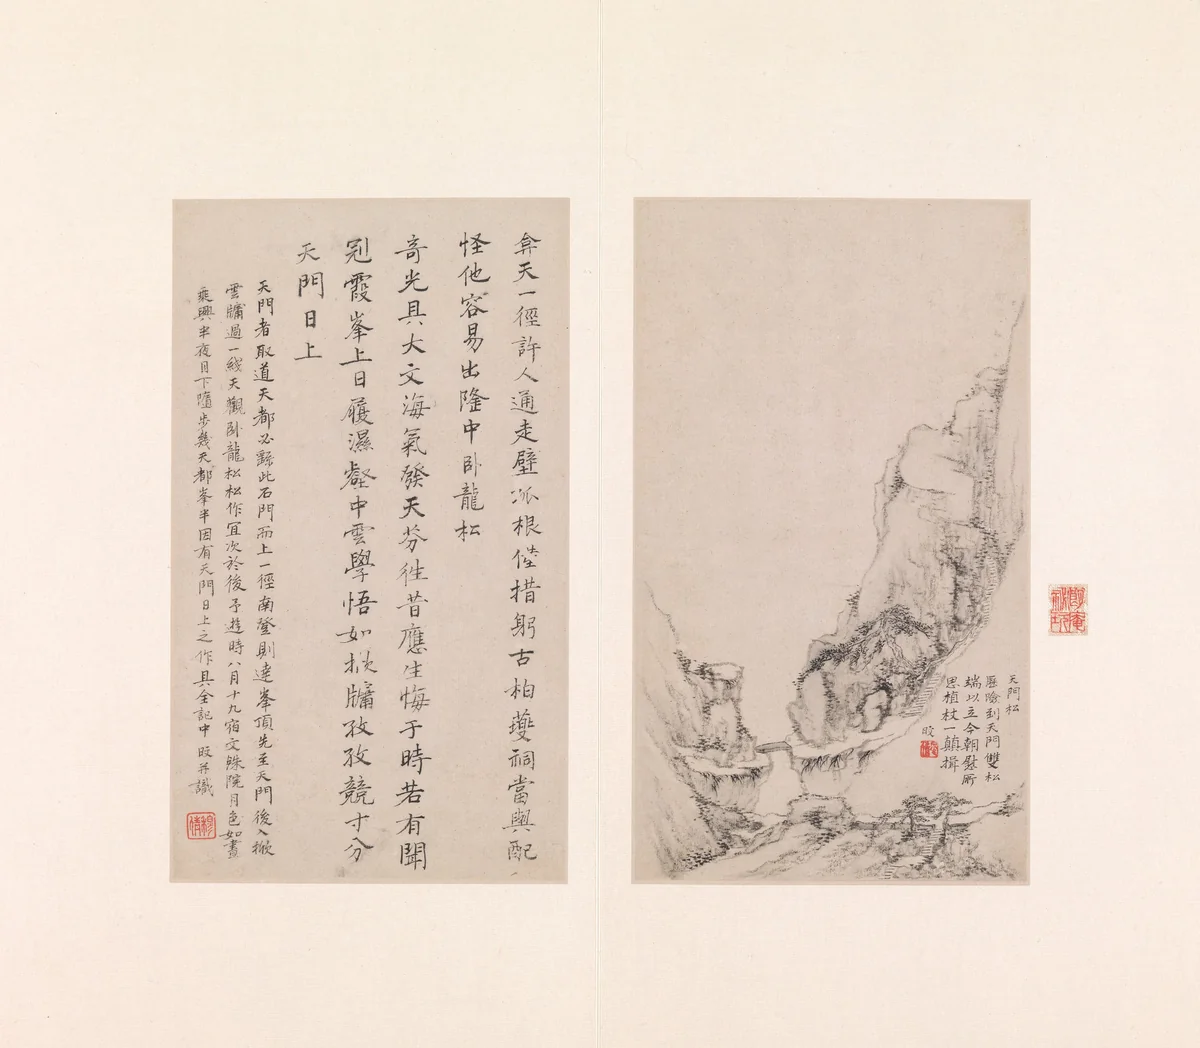 天門松
歷險到天門雙松
端以立今朝慰所
思植杖一顛揖
旼
弇天一徑許人通走壁孤根倦措躬古柏夔祠當輿配
怪他容易出隆中臥龍松
奇光具大文海氣發天芬往昔應生悔于時若有聞
冠霞峯上日履濕壑中雲學悟如掀牖孜孜競寸分
天門日上
天門者取道天都必繇此石門而上一徑南登則達峯頂先至天門後入掀
雲牖過一綫天觀臥龍松松作宜次於後予遊時八月十九宿文殊院月色如晝
乘興半夜月下隨步幾天都峯半因有天門日上之作具全記中旼并識